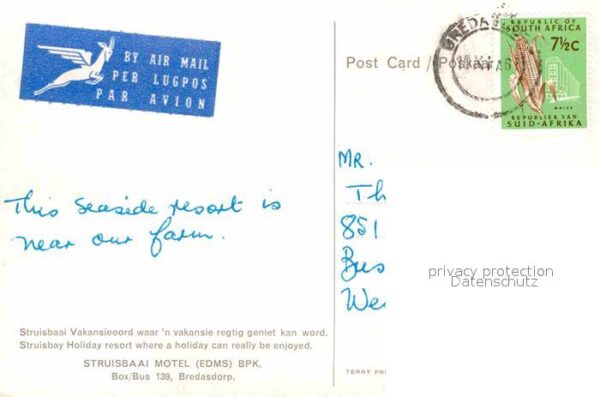 BY AIR MAIL
PER LUGPOS
PAR AVION
Post Card / Poskaart
REPUBLIC OF
SOUTH AFRICA
7½c
MAIZE
REPUBLIEK VAN
SUID-AFRIKA
This seaside resort is
near our farm.
MR.
Th
851
Bus
We
privacy protection
Datenschutz
Struisbaai Vakansieoord waar 'n vakansie regtig geniet kan word.
Struisbay Holiday resort where a holiday can really be enjoyed.
STRUISBAAI MOTEL (EDMS) BPK.
Box/Bus 139, Bredasdorp.
TERRY PR